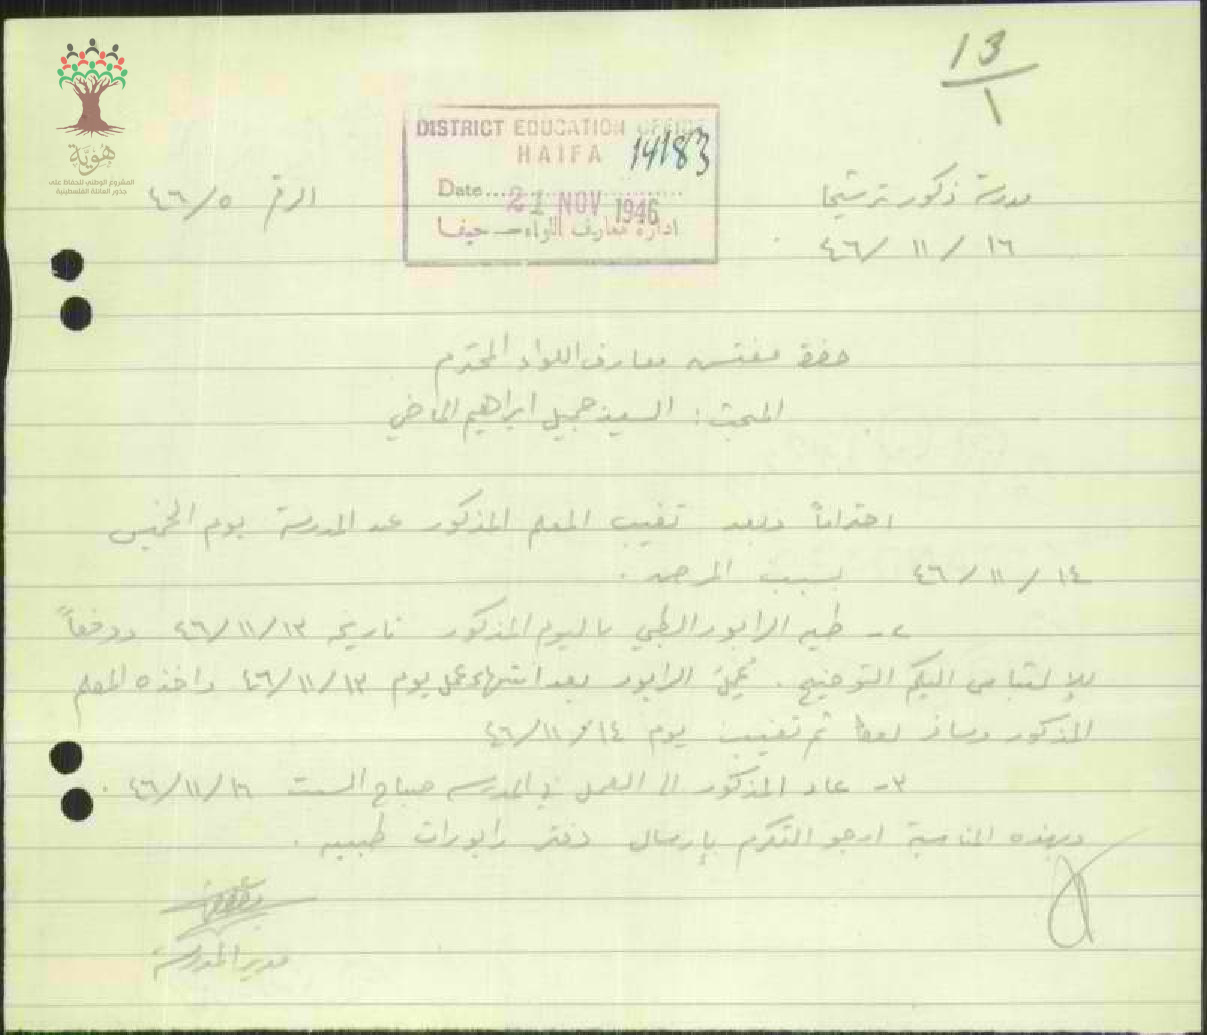 13
١
هوية
المشروع الوطني للحفاظ على
جذور العائلة الفلسطينية
DISTRICT EDUCATION OFFICE
HAIFA 14183
Date 21 NOV 1946
ادارة معارف اللواء - حيفا
مدرسة ذكور ترشيحا
الرقم ٤٦/٥
١٦ / ١١ / ٤٦
حضرة مفتش معارف اللواء المحترم
المبحث : السيد جميل ابراهيم الماضي
احتراماً وبعد تغيب المعلم المذكور عن المدرسة يوم الخميس
١٤ / ١١ / ٤٦ بسبب المرض .
٢- طيه الرابور الطبي باليوم المذكور تاريخ ١٣ / ١١ / ٤٦ ودفعاً
للإلتباس اليكم التوضيح . عُمِلَ الرابور بعد انتهاء عمل يوم ١٣ / ١١ / ٤٦ واخذه المعلم
المذكور وسافر ثم تغيب يوم ١٤ / ١١ / ٤٦
٣- عاد المذكور الى العمل في المدرسه صباح السبت ١٦ / ١١ / ٤٦ .
وبهذه المناسبة ارجو التكرم بإرسال دفتر رابورات طبيه .
مدير المدرسة